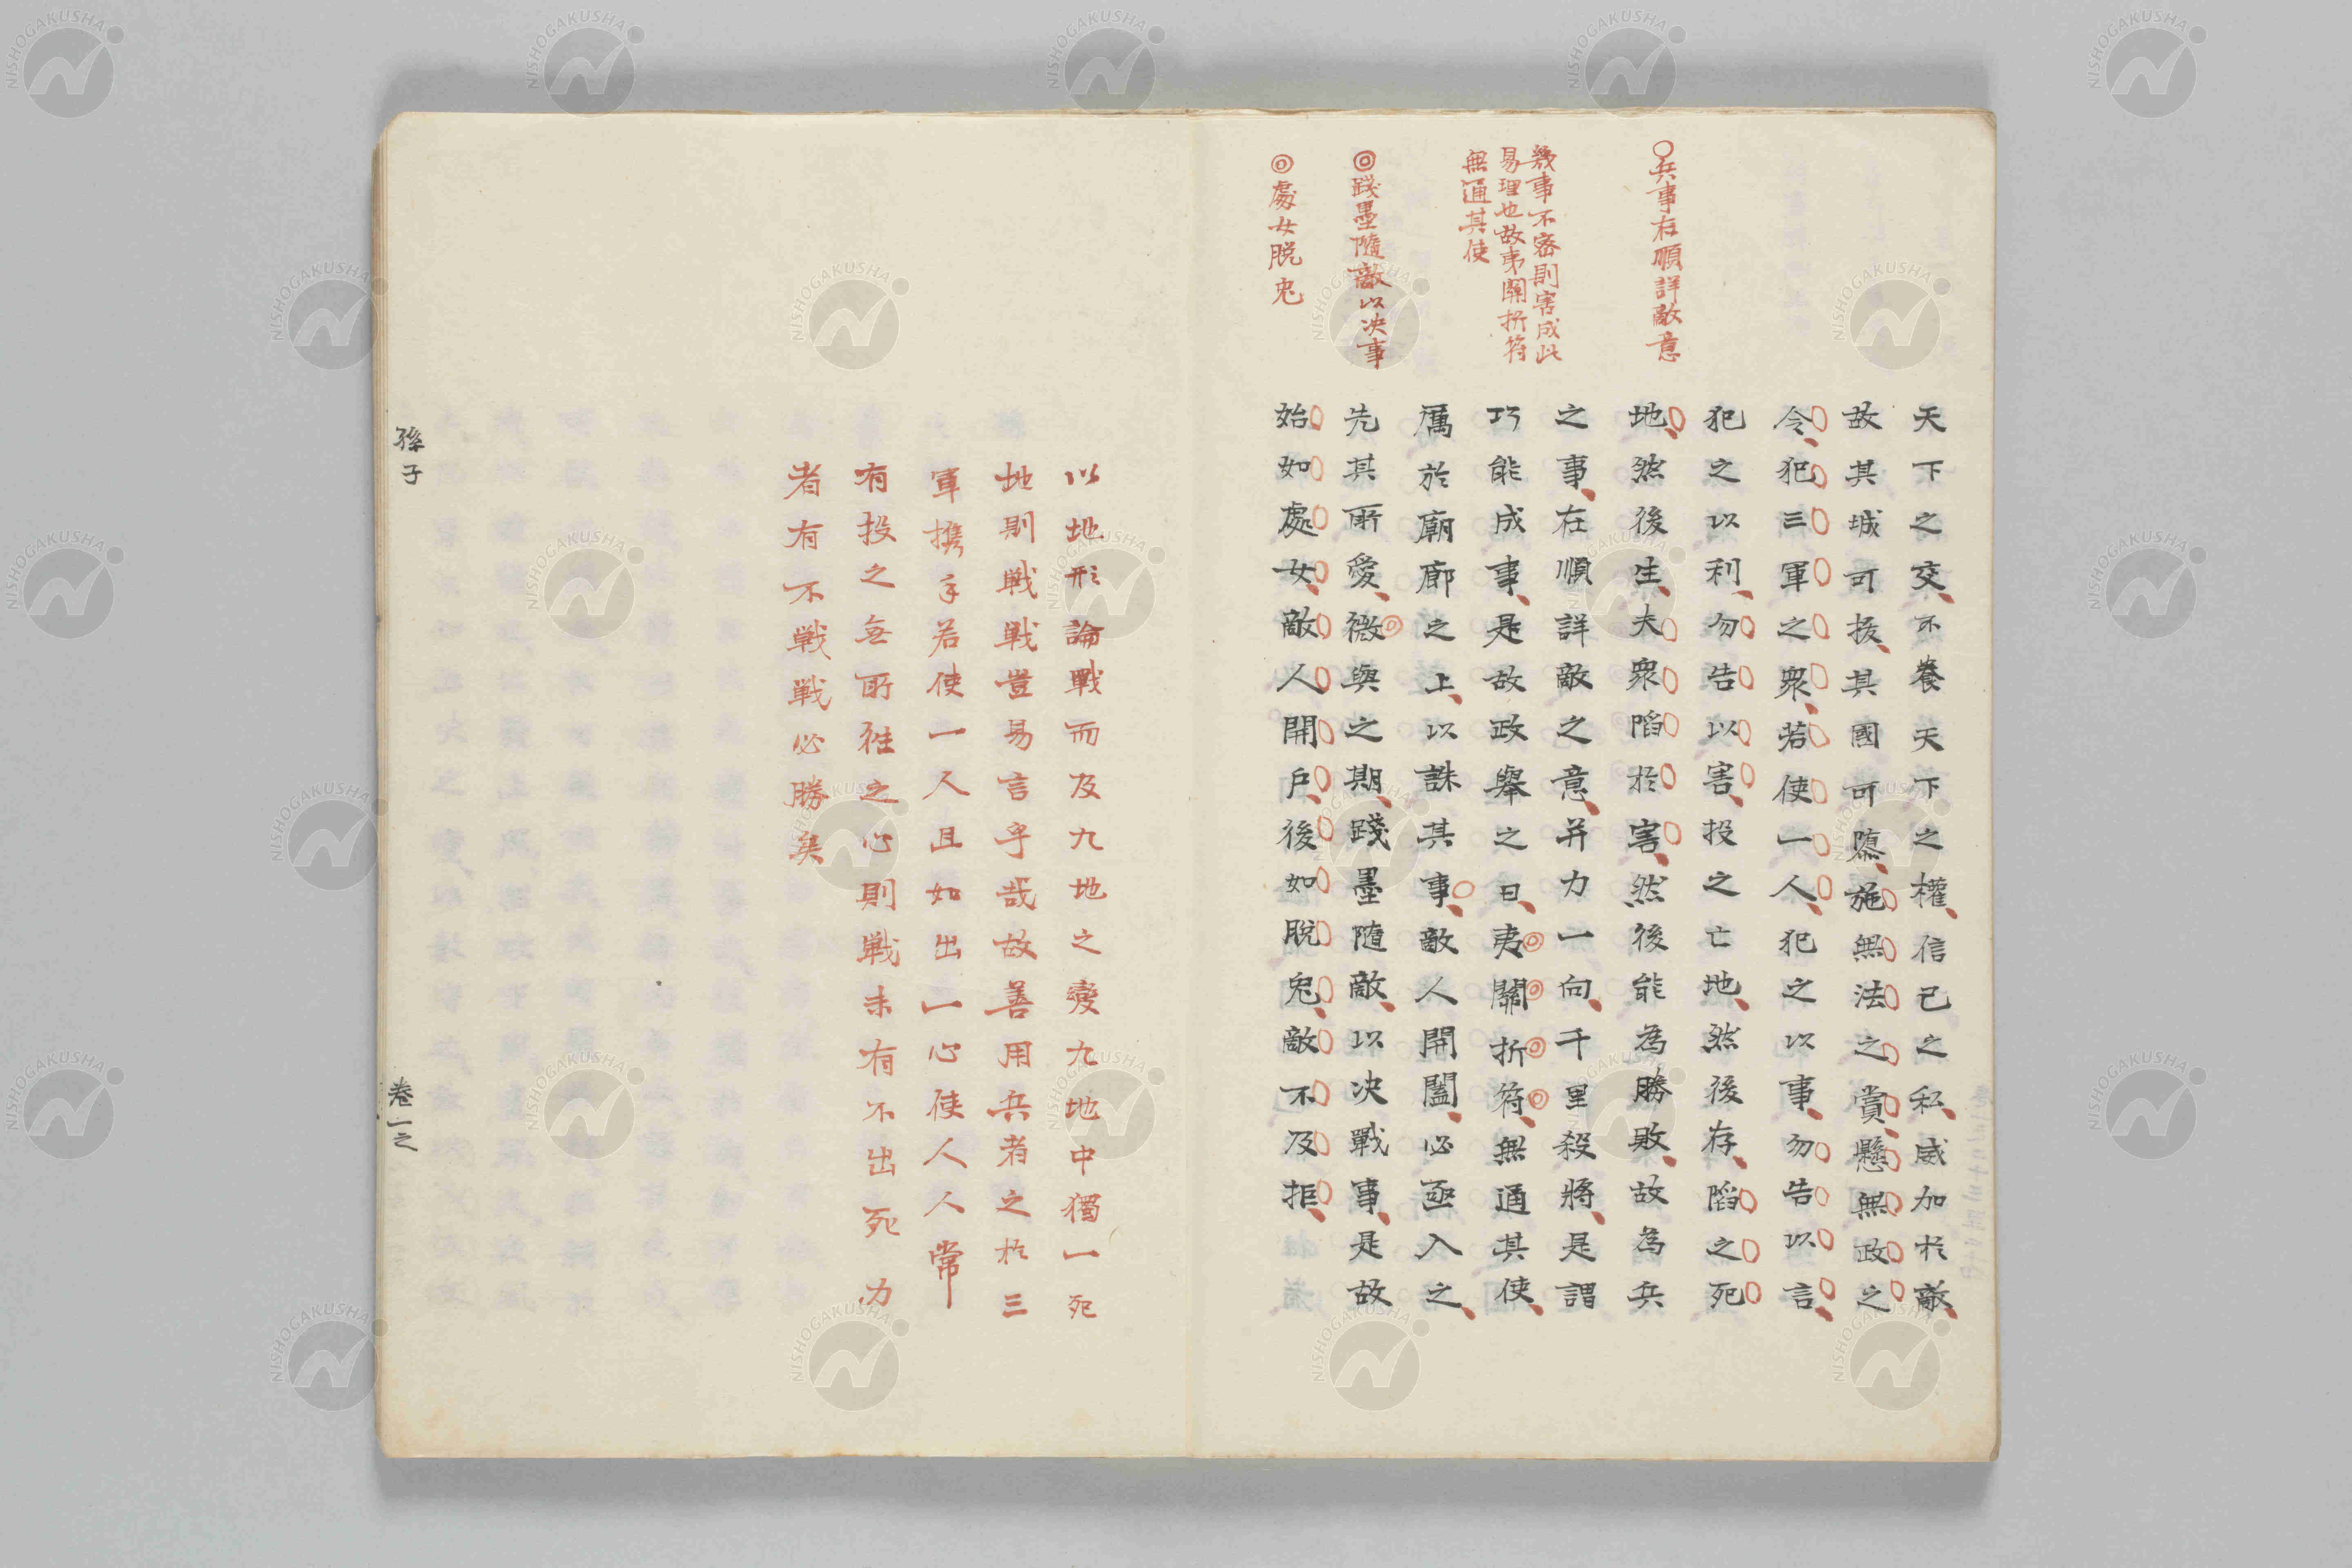 ○兵事在順詳敵意
幾事不密則害成此
易理也故夷關折符
無通其使
◎踐墨隨敵以决事
◎處女脱兔
天下之交不養天下之權信己之私威加於敵
故其城可拔其國可隳施無法之賞懸無政之
令犯三軍之衆若使一人犯之以事勿告以言
犯之以利勿告以害投之亡地然後存陷之死
地然後生夫衆陷於害然後能為勝敗故為兵
之事在順詳敵之意并力一向千里殺將是謂
巧能成事是故政舉之日夷關折符無通其使
厲於廟廊之上以誅其事敵人開闔必亟入之
先其所愛微與之期踐墨隨敵以决戰事是故
始如處女敵人開戶後如脱兔敵不及拒
以地形論戰而及九地之變九地中獨一死
地則戦戦豈易言乎哉故善用兵者之於三
軍携手若使一人且如出一心使人人常
有投之無所往之心則戦未有不出死力
者有不戦戦必勝矣
孫子
卷一之
NISHOGAKUSHA